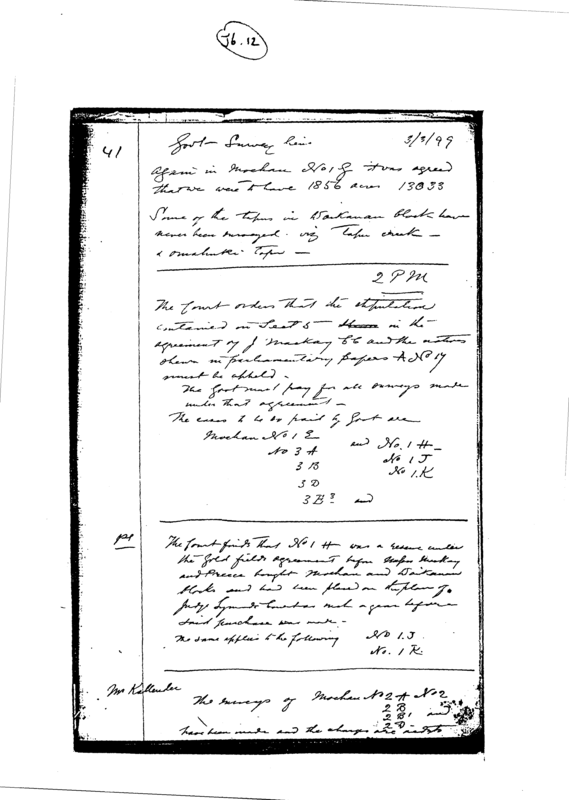 J6.12
41
Govt Survey lien 3/3/99
Again in Moehau No 1 G it was agreed
that we were to have 1856 acres 13033
Some of the tapus in Waikanae block have
never been surveyed. viz Tapu creek –
& Omahuki Tapu –
2 PM
The Court orders that the stipulation
contained in Sect 5 in the
agreement of J Mackay 66 and the natives
shown in parliamentary papers A No 17
must be upheld.
The Govt must pay for all surveys made
under that agreement –
The cases to be so paid by Govt are
Moehau No 1 E and No. 1 H –
No 3 A No 1 J
3 B No 1.K
3 D
3 B 3 and
The Court finds that No 1 H was a reserve under
the Gold fields agreement before Messrs Mackay
and Preece bought Moehau and Waikanae
blocks and had been placed on the plan of
Judge Court as such a year before
said purchase was made –
The same applies to the following No 1.J
No. 1 K.
Mr Kallender
The surveys of Moehau No 2 A No 2
2 B
2 B1 and
2 D
have been made and the charges are